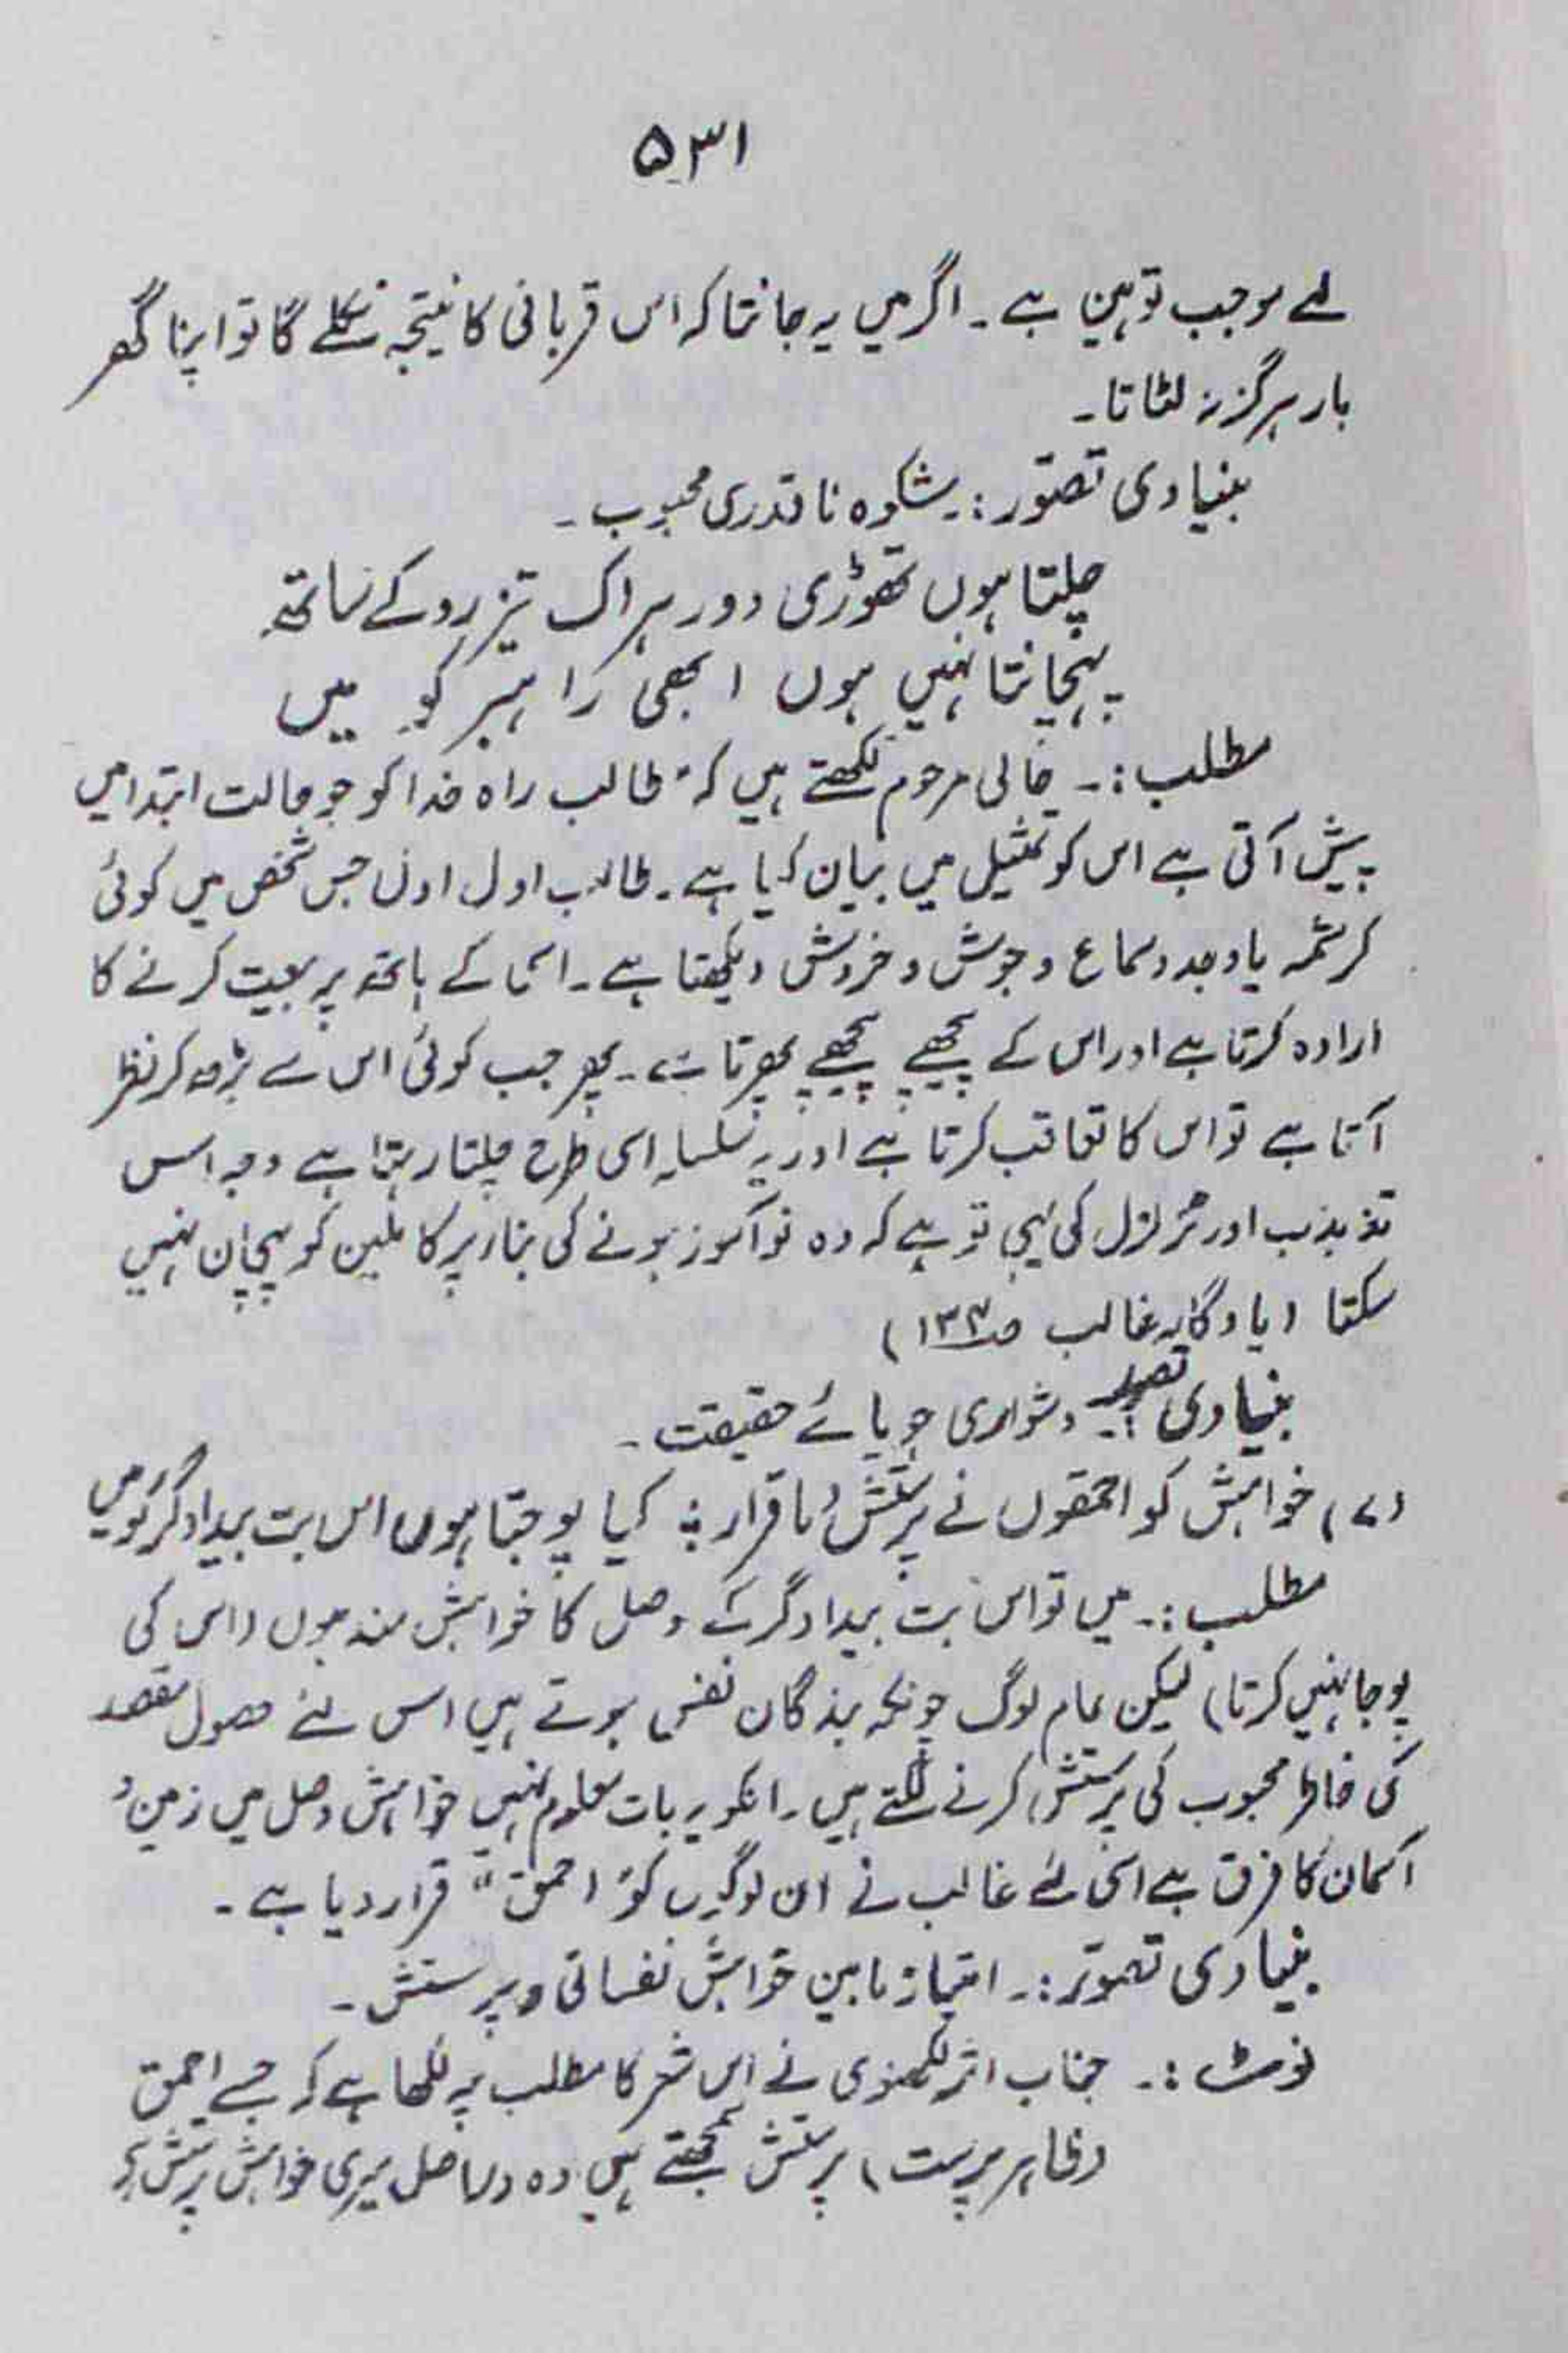 ۵۳۱
لئے موجب توہین ہے۔ اگر میں یہ جانتا کہ اس قربانی کا نیتجہ نکلے گا تو اپنا گھر
بار ہرگز نہ لٹاتا۔
بنیادی تصوّر :۔ شکوہ ناقدری محبوب۔
چلتا ہوں تھوڑی دور ہر اک تیز رو کے ساتھ
پہنچانتا نہیں ہوں ابھی راہبر کو میں
مطلب :۔ حالی مرحوم لکھتے ہیں کہ "طالب راہ خدا کو جو حالت ابتدا میں
پیش آتی ہے اس کو تمثیل میں بیان کیا ہے۔ طالب اول اول جس شخص میں کوئی
کرشمہ یا وجد و سماع و جوش و خروش دیکھتا ہے۔ اسی کے ہاتھ پر بیعت کرنے کا
ارادہ کرتا ہے اور اس کے پیچھے پیچھے پھرتا ہے۔ پھر جب کوئی اس سے بڑھ کر نظر
آتا ہے تو اس کا تعاقب کرتا ہے اور یہ سلسلہ اسی طرح چلتا رہتا ہے وجہ اس
تذبذب اور تزلزل کی یہی تو ہے کہ وہ نو آموز ہونے کی بناء پر کاملین کو پہچان نہیں
سکتا (یادگار غالب ص۱۳۲)
بنیادی تصور :۔ دشواری جویائے حقیقت۔
(۷) خواہش کو احمقوں نے پرستش دیا قرار ؛ کیا پوجتا ہوں اس بت بیدادگر کو میں
مطلب :۔ میں تو اس بت بیدادگر کے وصل کا خواہش مند ہوں (اس کی
پوجا نہیں کرتا) لیکن عام لوگ چونکہ بندگان نفس ہوتے ہیں اس لئے حصول مقصد
کی خاطر محبوب کی پرستش کرنے لگتے ہیں۔ انکو یہ بات معلوم نہیں خواہش وصل میں زمین و
آسمان کا فرق ہے اسی لئے غالب نے ان لوگوں کو "احمق" قرار دیا ہے۔
بنیادی تصوّر :۔ امتیاز مابین خواہش نفسانی و پرستش۔
نوٹ :۔ جناب اثر لکھنوی نے اس شعر کا مطلب یہ لکھا ہے کہ جسے احمق
(ظاہر پرست) پرستش سمجھتے ہیں وہ دراصل میری خواہش پرستش ہے